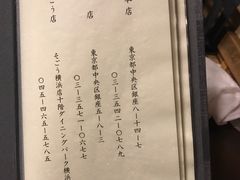 店
東京都中央区銀座八ー十四ー七
〇三ー三五四二ー〇七八九
店
東京都中央区銀座五ー八ー三
〇三ー三五七一ー〇六七七
そごう店
そごう横浜店十階ダイニングパーク横浜
〇四五ー四六五ー五七八五